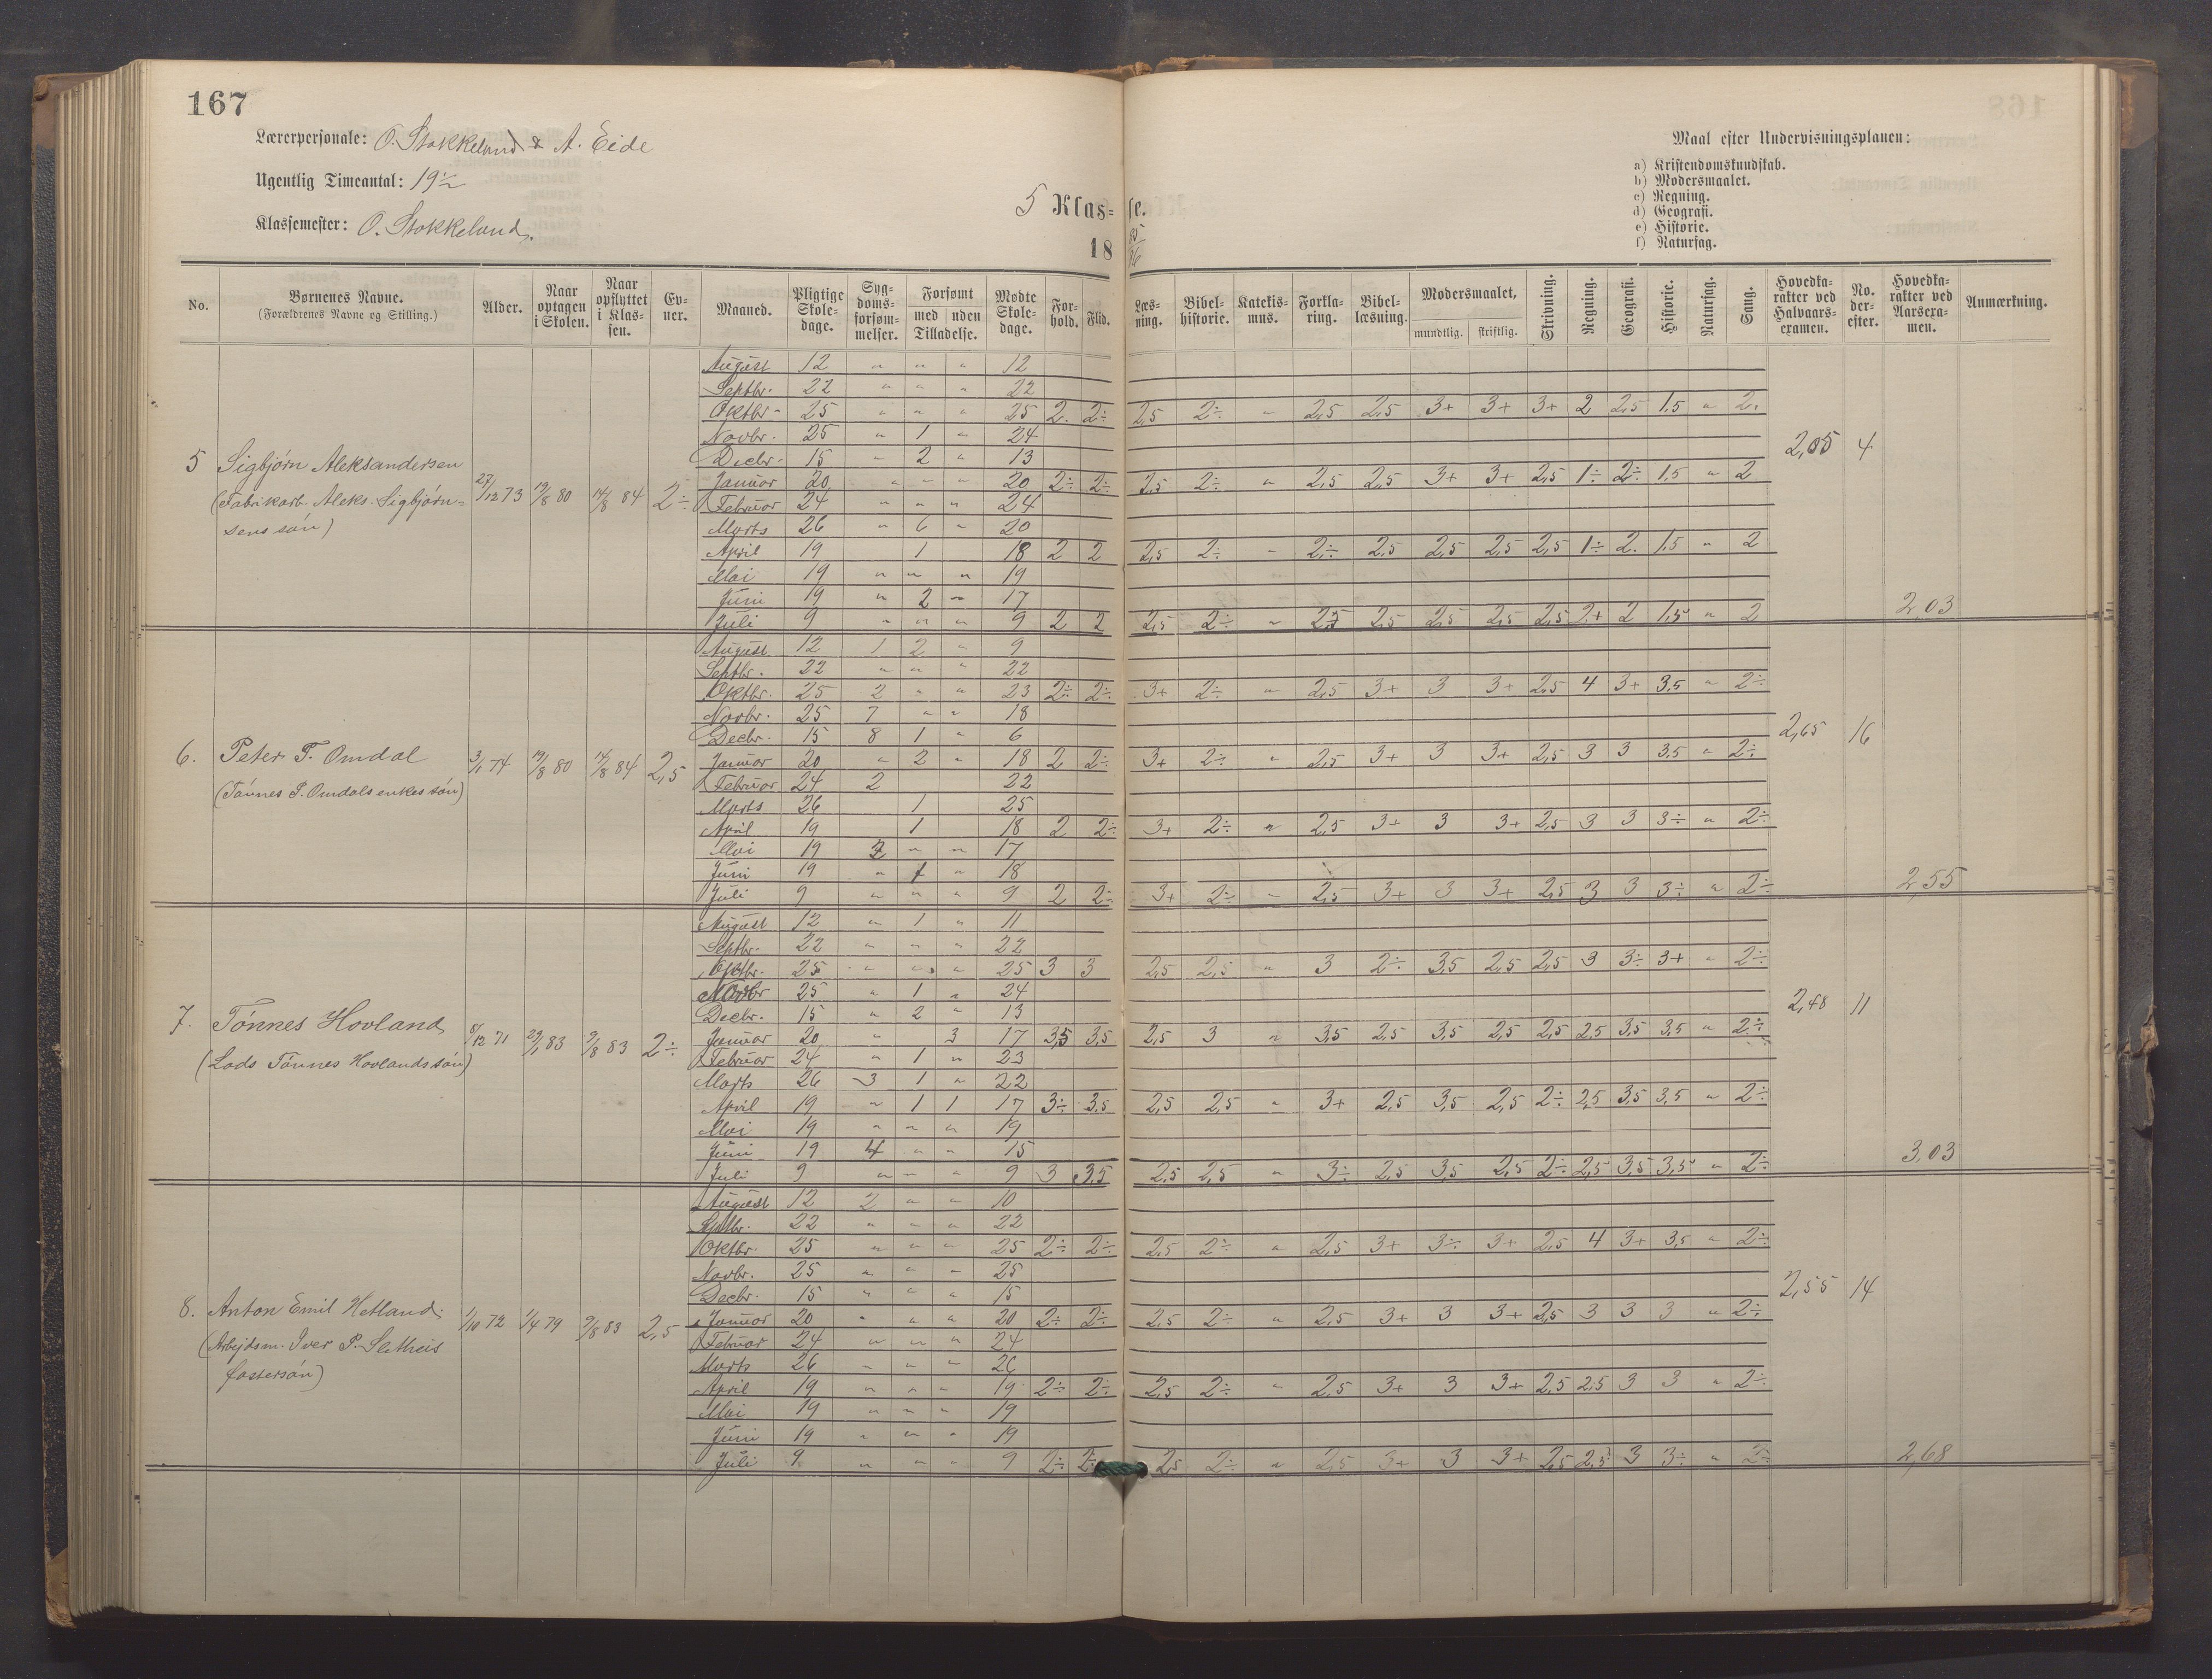 167
Lærerpersonale: O. Stokkeland & A. Eide
Ugentlig Timeantal: 19½
Klassemester: O. Stokkeland.
5 Klasse.
18 85/86
Maal efter Undervisningsplanen:
a) Kristendomskundskab.
b) Modersmaalet.
c) Regning.
d) Geografi.
e) Historie.
f) Naturfag.
No. | Børnenes Navne. (Forældrenes Navne og Stilling.) | Alder. | Naar optagen i Skolen. | Naar opflyttet i Klassen. | Evner. | Maaned. | Pligtige Skoledage. | Sygdomsforsømmelser. | Forsømt med uden Tilladelse. | Mødte Skoledage. | Forhold. | Flid. | Læsning. | Bibelhistorie. | Katekismus. | Forklaring. | Bibellæsning. | Modersmaalet, mundtlig. skriftlig. | Skrivning. | Regning. | Geografi. | Historie. | Naturfag. | Sang. | Hovedkarakter ved Halvaarsexamen. | No. derefter. | Hovedkarakter ved Aarsexamen. | Anmærkning.
5 Sigbjørn Aleksandersen
(Fabrikarb. Aleks. Sigbjørnsens søn)
27/12 73 19/8 80 14/8 84 2÷
August 12 " " " 12
Septbr. 22 " " " 22
Oktbr. 25 " " " 25 2. 2÷ 2,5 2÷ " 2,5 2,5 3+ 3+ 3+ 2 2,5 1,5 " 2.
Novbr. 25 " 1 " 24
Decbr. 15 " 2 " 13
2,05 4
Januar 20 " " " 20 2÷ 2÷ 2,5 2÷ " 2,5 2,5 3+ 3+ 2,5 1÷ 2÷ 1,5 " 2
Februar 24 " " " 24
Marts 26 " 6 " 20
April 19 1 18 2 2 2,5 2÷ " 2÷ 2,5 2,5 2,5 2,5 1÷ 2. 1,5 " 2
Mai 19 " " " 19
Juni 19 " 2 " 17
Juli 9 " " " 9 2 2 2,5 2÷ " 2,5 2,5 2,5 2,5 2,5 2+ 2 1,5 " 2 2,03
6. Peter T. Omdal
(Tønnes P. Omdals enkes søn)
3/1 74 19/8 80 14/8 84 2,5
August 12 1 2 " 9
Septbr. 22 " " " 22
Oktbr. 25 2 " " 23 2÷ 2÷ 3+ 2÷ " 2,5 3+ 3 3+ 2,5 4 3+ 3,5 " 2÷
Novbr. 25 7 " " 18
Decbr. 15 8 1 " 6
2,65 16
Januar 20 " 2 " 18 2 2÷ 3+ 2÷ " 2,5 3+ 3 3+ 2,5 3 3 3,5 " 2÷
Februar 24 2 22
Marts 26 1 25
April 19 1 18 2 2÷ 3+ 2÷ " 2,5 3+ 3 3+ 2,5 3 3 3÷ " 2÷
Mai 19 2 " " 17
Juni 19 " 1 " 18
Juli 9 " " " 9 2 2÷ 3+ 2÷ " 2,5 3+ 3 3+ 2,5 3 3 3÷ " 2÷ 2,55
7. Tønnes Hovland
(Lods Tønnes Hovlands søn)
8/12 71 29/1 83 9/8 83 2÷
August 12 " 1 " 11
Septbr. 22 " " " 22
Oktbr. 25 " " " 25 3 3 2,5 2,5 " 3 2÷ 3,5 2,5 2,5 3 3÷ 3+ " 2÷
Novbr 25 " 1 " 24
Decbr. 15 " 2 " 13
2,48 11
Januar 20 " 3 17 3,5 3,5 2,5 3 " 3,5 2,5 3,5 2,5 2,5 2,5 3,5 3,5 " 2÷
Februar 24 " 1 " 23
Marts 26 3 1 " 22
April 19 " 1 1 17 3÷ 3,5 2,5 2,5 " 3+ 2,5 3,5 2,5 2÷ 2,5 3,5 3,5 " 2÷
Mai 19 " " " 19
Juni 19 4 " " 15
Juli 9 " " " 9 3 3,5 2,5 2,5 " 3÷ 2,5 3,5 2,5 2÷ 2,5 3,5 3,5 " 2÷ 3,03
8. Anton Emil Hetland.
(Arbejdsm. Iver P. Sletheis
fostersøn)
1/10 72 1/4 79 9/8 83 2,5
August 12 2 " " 10
Septbr. 22 " " " 22
Oktbr. 25 " " " 25 2÷ 2÷ 2,5 2÷ " 2,5 3+ 3÷ 3+ 2,5 4 3+ 3,5 " 2÷
Novbr. 25 " " " 25
Decbr. 15 " " " 15
2,55 14
Januar 20 " " " 20 2÷ 2÷ 2,5 2÷ " 2,5 3+ 3 3+ 2,5 3 3 3 " 2÷
Februar 24 " " " 24
Marts 26 " " " 26
April 19 " " " 19 2÷ 2÷ 2,5 2÷ " 2,5 3+ 3 3+ 2,5 2,5 3 3 " 2÷
Mai 19 " " " 19
Juni 19 " " " 19
Juli 9 " " " 9 2÷ 2÷ 2,5 2÷ " 2,5 3+ 3 3+ 2,5 2,5 3 3÷ " 2÷ 2,68